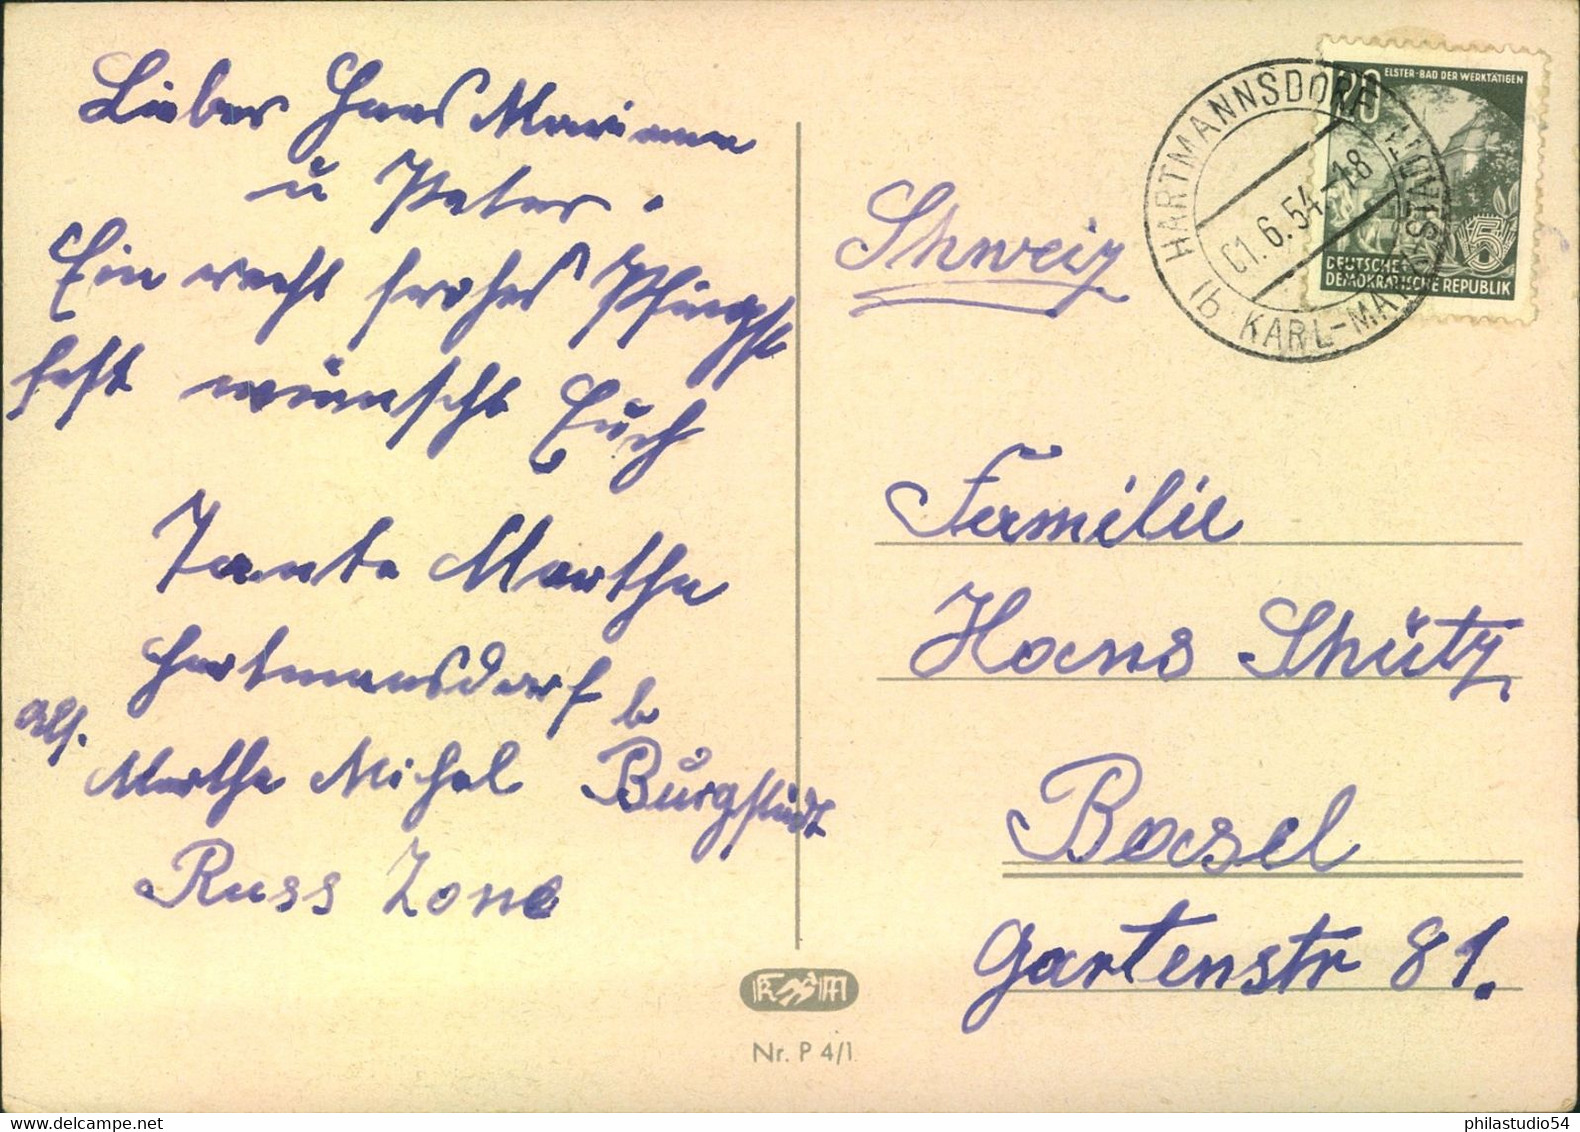 Lieber Hans Marianne
u Peter.
Ein recht frohes Pfingst
fest wünscht Euch
Tante Martha
Hartmansdorf
b
Abs.
Martha Michel Burgstädt
Russ Zone
Schweiz
Familie
Hans Shütz
Basel
Gartenstr 81.
20 ELSTER-BAD DER WERKTÄTIGEN
5
DEUTSCHE
DEMOKRATISCHE REPUBLIK
HARTMANNSDORF
01.6.54-18
1b · KARL-MARX-STADT
Nr. P 4/1
philastudio54